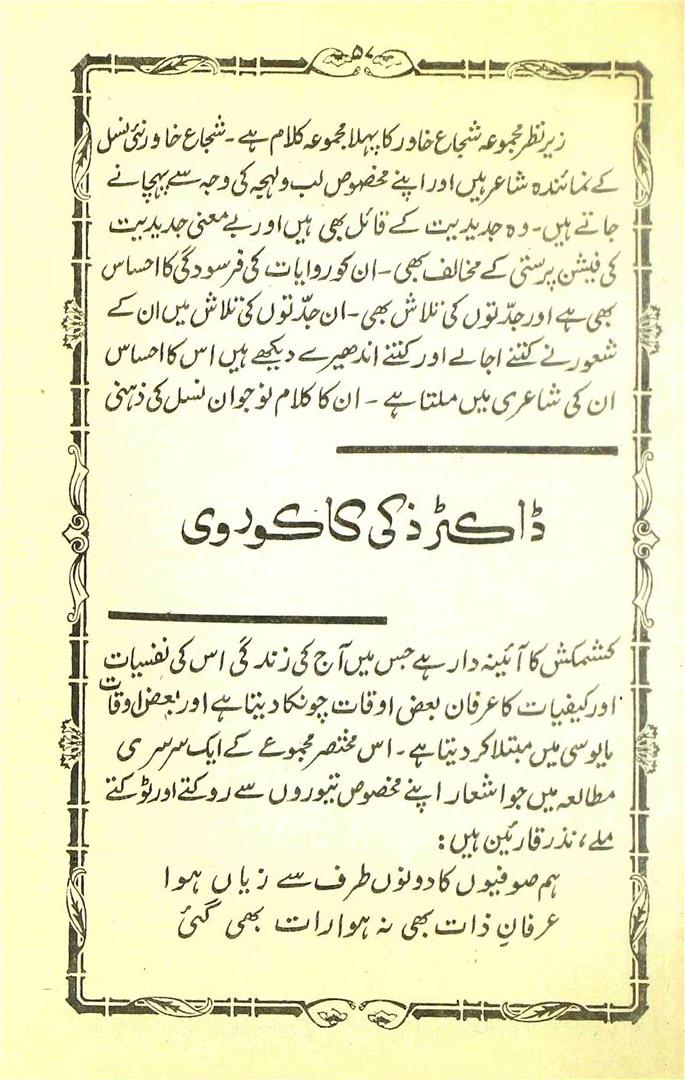 ۵۷
زیرنظر مجموعہ شجاع خاور کا پہلا مجموعہ کلام ہے۔ شجاع خاور نئی نسل
کے نمائندہ شاعر ہیں اور اپنے مخصوص لب ولہجہ کی وجہ سے پہچانے
جاتے ہیں۔ وہ جدیدیت کے قائل بھی ہیں اور بے معنی جدیدیت
کی فیشن پرستی کے مخالف بھی۔ ان کو روایات کی فرسودگی کا احساس
بھی ہے اور جدّتوں کی تلاش بھی۔ ان جدّتوں کی تلاش میں ان کے
شعور نے کتنے اجالے اور کتنے اندھیرے دیکھے ہیں اس کا احساس
ان کی شاعری میں ملتا ہے۔ ان کا کلام نوجوان نسل کی ذہنی
ڈاکٹر ذکی کاکوروی
کشمکش کا آئینہ دار ہے جس میں آج کی زندگی اس کی نفسیات
اور کیفیات کا عرفان بعض اوقات چونکا دیتا ہے اور بعض اوقات
مایوسی میں مبتلا کر دیتا ہے۔ اس مختصر مجموعے کے ایک سرسری
مطالعہ میں جو اشعار اپنے مخصوص تیوروں سے روکتے اور ٹوکتے
ملے، نذر قارئین ہیں:
ہم صوفیوں کا دونوں طرف سے زیاں ہوا
عرفانِ ذات بھی نہ ہوا رات بھی گئی